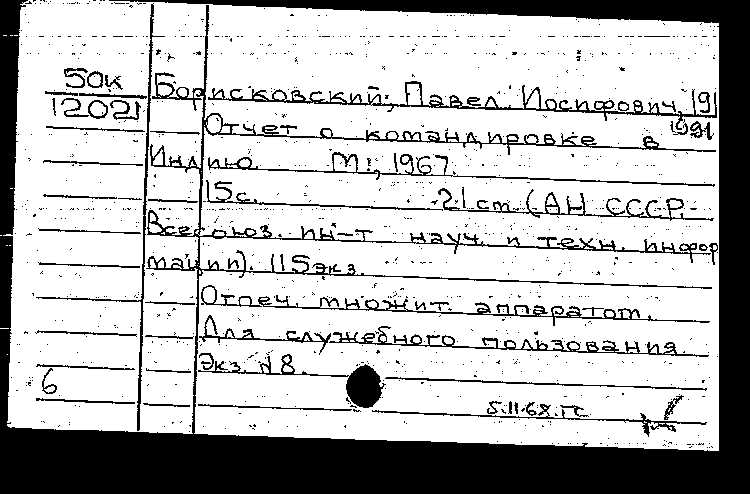 50к
12021
Борисковский, Павел Иосифович, 191
1991
Отчет о командировке в
Индию. М., 1967.
15с. 21 cm (АН СССР.-
Всесоюз. ин-т науч. и техн. инфор
мации). 115экз.
Отпеч. множит. аппаратом.
Для служебного пользования.
Экз. №8.
6
5.11.68.гс